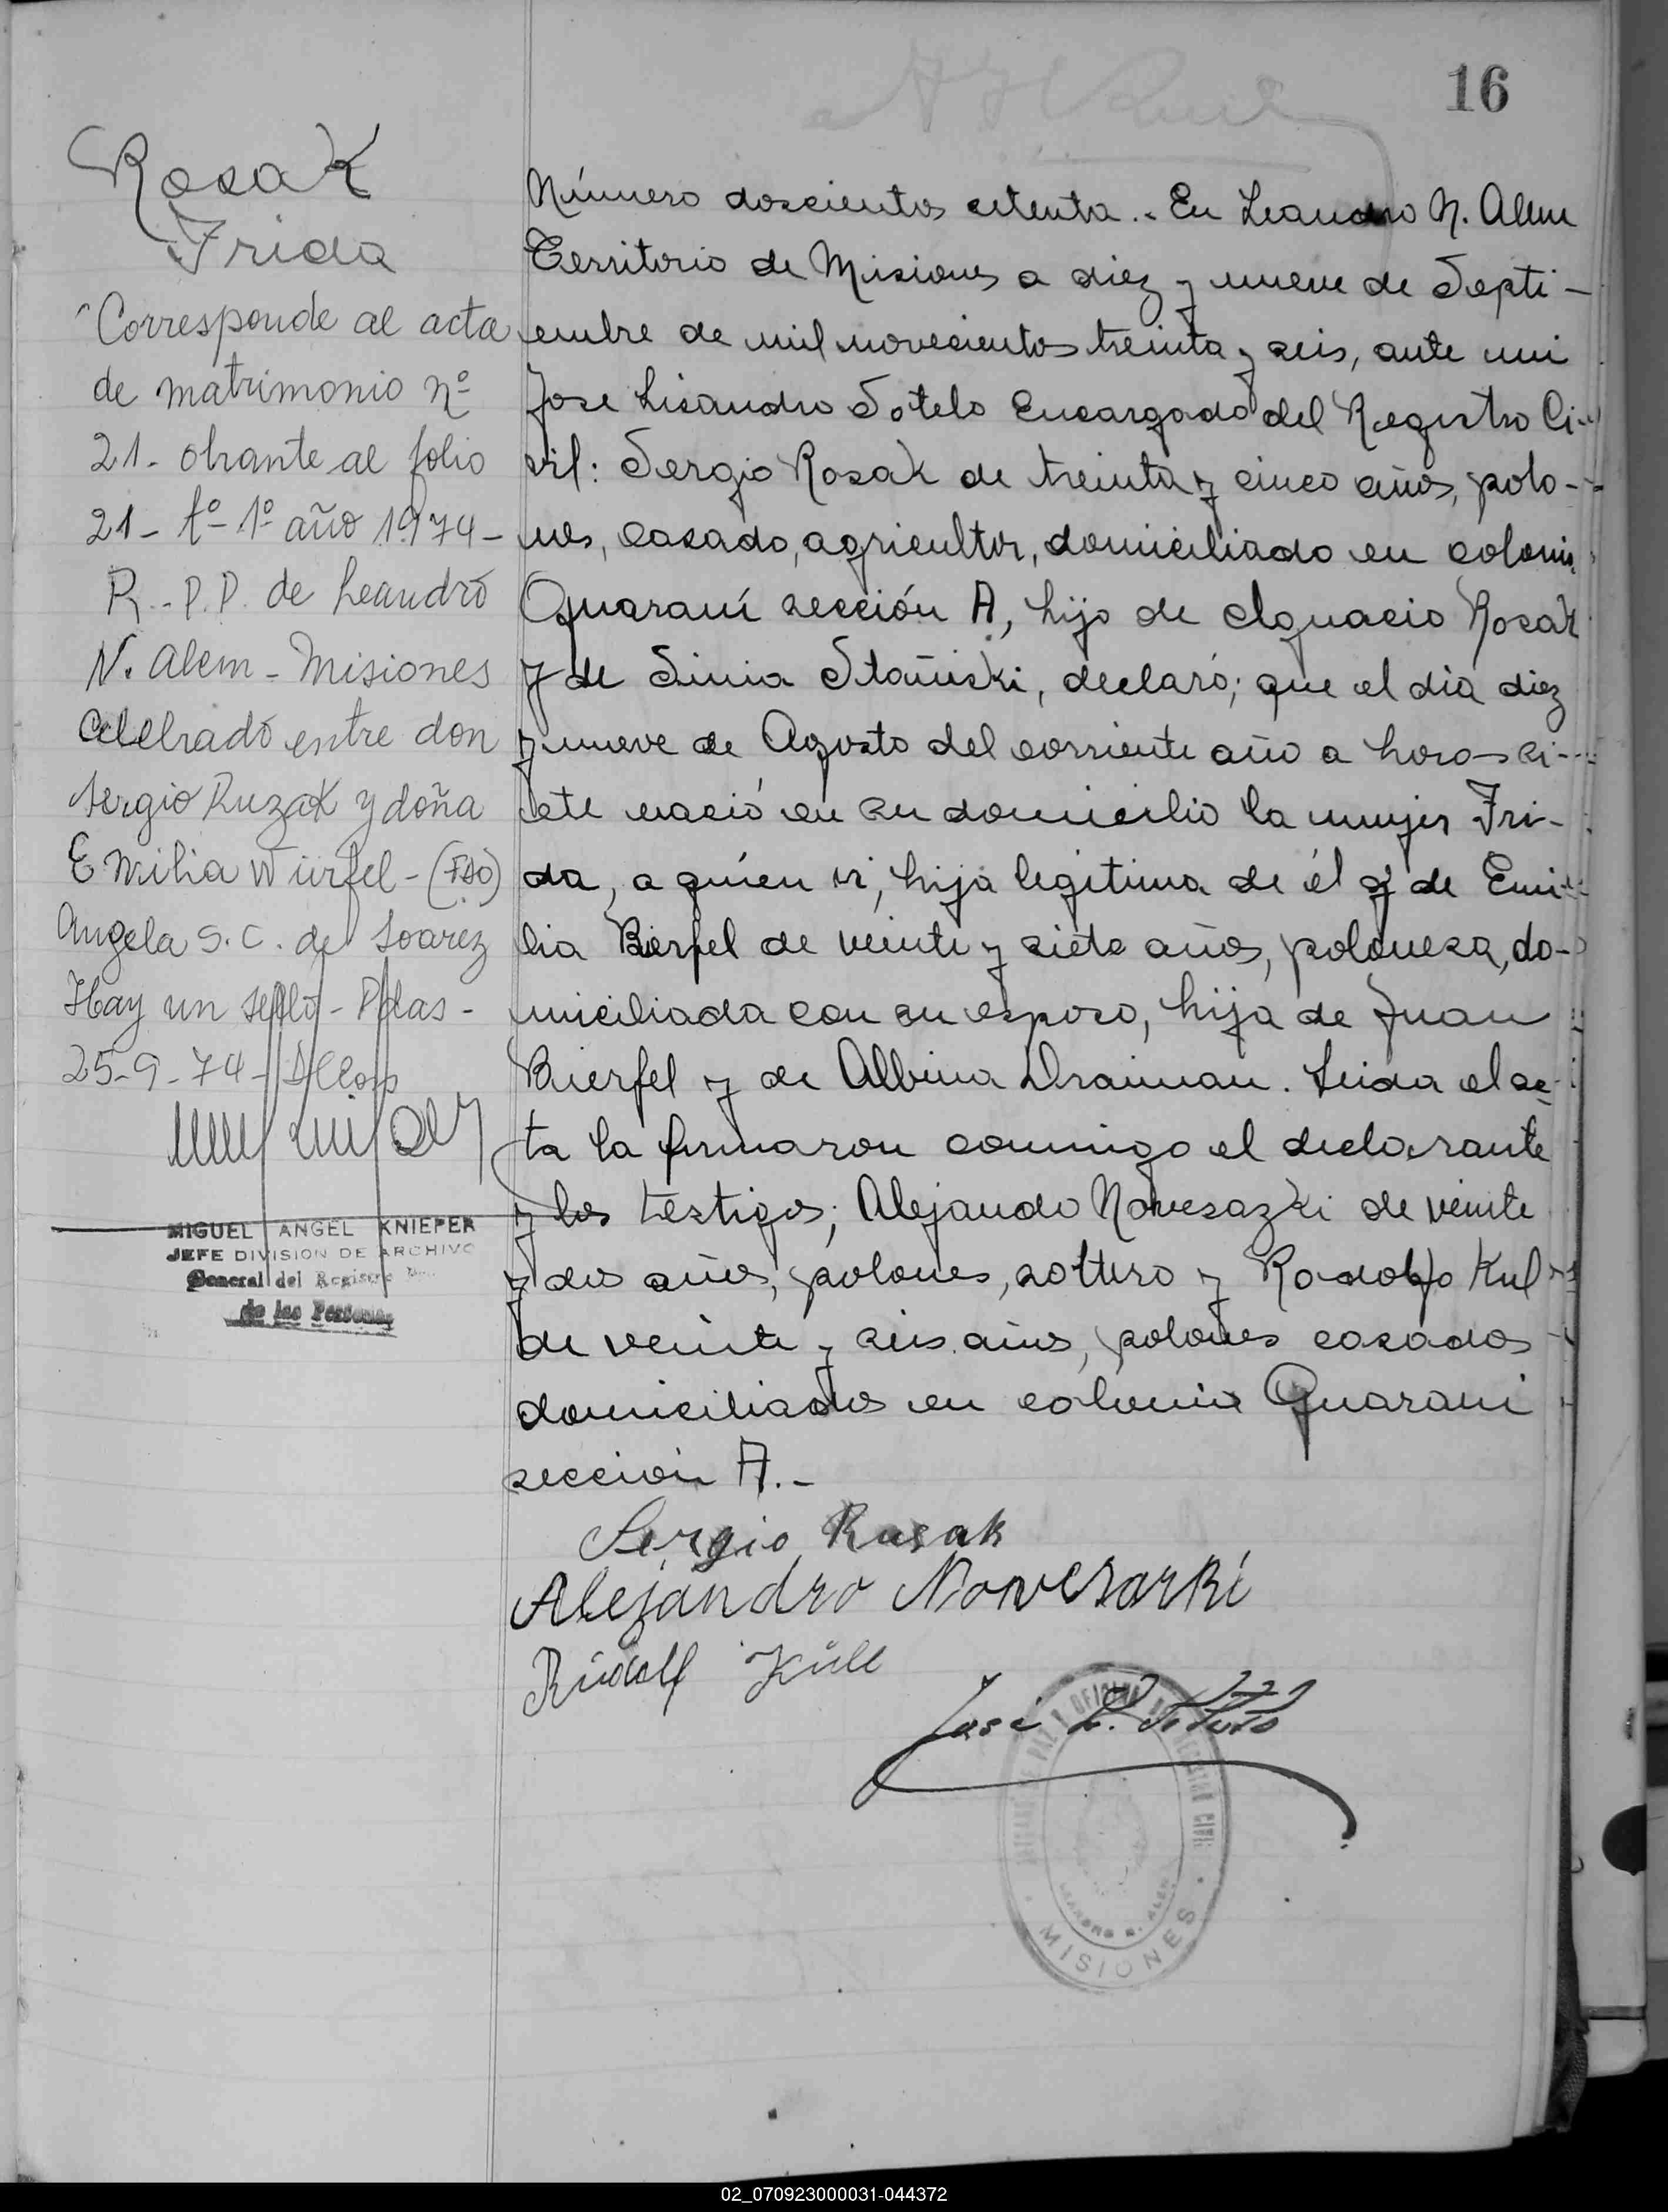 16
Rosak
Frida
Corresponde al acta
de matrimonio nº
21- obrante al folio
21- tº- 1º año 1974-
R.-P.P. de Leandro
N. Alem - Misiones
Celebrado entre don
Sergio Ruzak y doña
Emilia Würfel - (FDO)
Angela S.C. de Soarez
Hay un sello - Pdas -
25-9-74-
MIGUEL ANGEL KNIEPER
JEFE DIVISION DE ARCHIVO
General del Registro
de las Personas
Número doscientos setenta.- En Leandro N. Alem
Territorio de Misiones a diez y nueve de Septi-
embre de mil novecientos treinta y seis, ante mi
Jose Lisandro Sotelo Encargado del Registro Ci-
vil: Sergio Rosak de treinta y cinco años, polo-
nes, casado, agricultor, domiciliado en colonia
Guaraní sección A, hijo de Ignacio Rosak
y de Sinia Stañiski, declaró; que el día diez
y nueve de Agosto del corriente año a horas si-
ete nació en su domicilio la mujer Fri-
da, a quien vi, hija legitima de él y de Emi-
lia Bierfel de veinte y siete años, polonesa, do-
miciliada con su esposo, hija de Juan
Bierfel y de Albina Draiman. Leida el ac-
ta la firmaron conmigo el declarante
y los testigos; Alejando Novesazki de veinte
y dos años, polones, soltero y Rodolfo Kul
de veinte y seis años, polones casados
domiciliados en colonia Guarani
sección A.-
Sergio Rusak
Alejandro Novesarki
Rudolf Küll
José L. Sotelo
OFICINA
REGISTRO CIVIL
LEANDRO N. ALEM
MISIONES
02_070923000031-044372